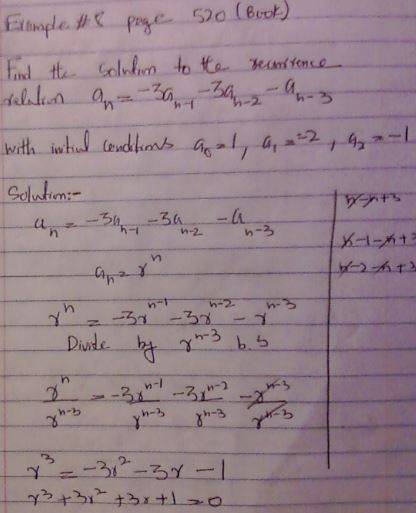 Example #8 page 520 (Book)
Find the solution to the recurrence
relation aₙ = -3aₙ₋₁ - 3aₙ₋₂ - aₙ₋₃
with initial conditions a₀ = 1, a₁ = -2, a₂ = -1
Solution:-
aₙ = -3aₙ₋₁ - 3aₙ₋₂ - aₙ₋₃
aₙ = rⁿ
rⁿ = -3rⁿ⁻¹ - 3rⁿ⁻² - rⁿ⁻³
Divide by rⁿ⁻³ b.s
rⁿ/rⁿ⁻³ = -3rⁿ⁻¹/rⁿ⁻³ - 3rⁿ⁻²/rⁿ⁻³ - rⁿ⁻³/rⁿ⁻³
r³ = -3r² - 3r - 1
r³ + 3r² + 3r + 1 = 0
n-n+3
n-1-n+3
n-2-n+3